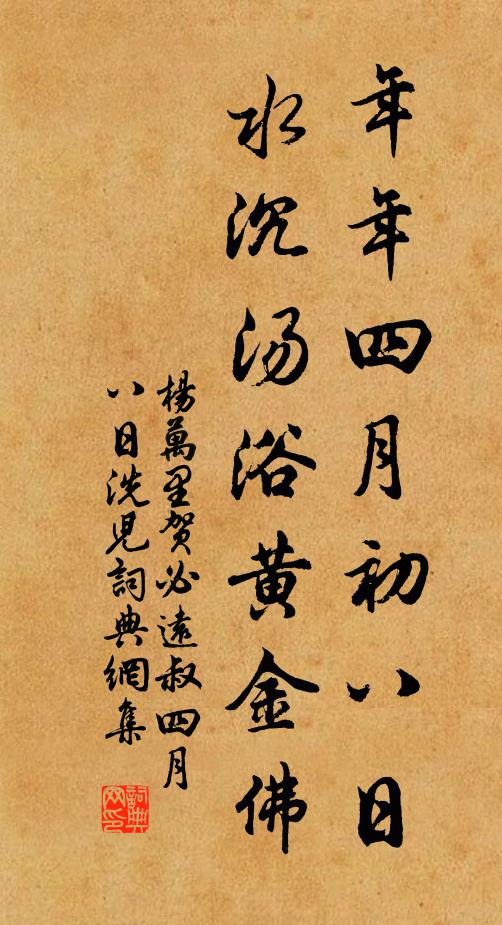 年年四月初八日
水沉湯浴黄金佛
楊萬里賀必遠叔四月
八日洗兒詞典網集
詞典網印